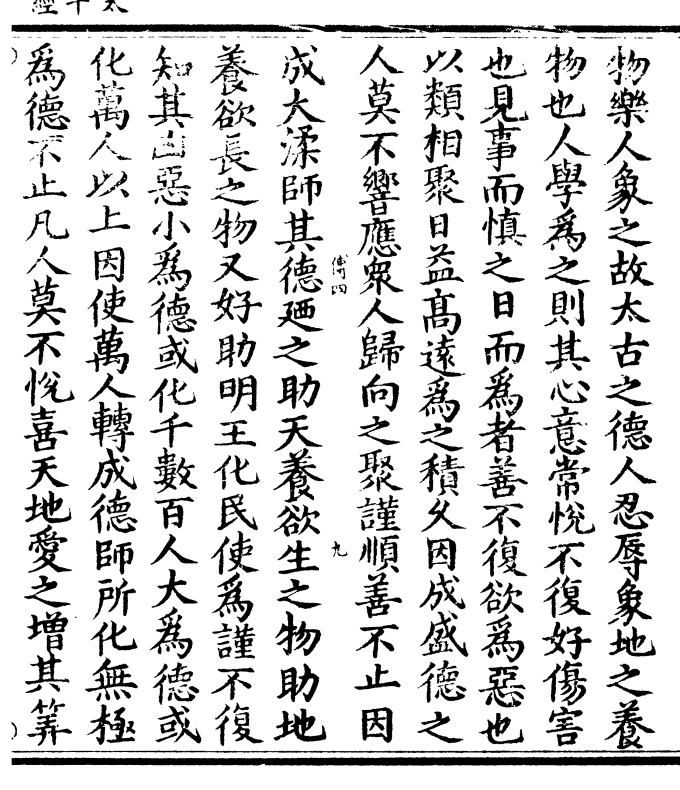 太平經
物樂人象之故太古之德人忍辱象地之養
物也人學爲之則其心意常悅不復好傷害
也見事而慎之日而爲者善不復欲爲惡也
以類相聚日益高遠爲之積久因成盛德之
人莫不響應衆人歸向之聚謹順善不止因
傅四 九
成大渘師其德迺之助天養欲生之物助地
養欲長之物又好助明王化民使爲謹不復
知其凶惡小爲德或化千數百人大爲德或
化萬人以上因使萬人轉成德師所化無極
爲德不止凡人莫不悅喜天地愛之增其筭